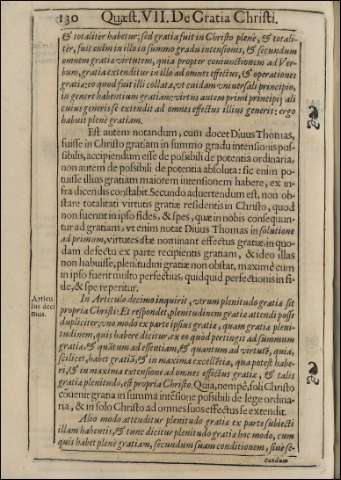 130 Quæst. VII. De Gratia Christi.
& totaliter habetur: sed gratia fuit in Christo plenè, & totali-
ter, fuit enim in illo in summo gradu intensionis, & secundum
omnem gratiæ virtutem, quia propter coniunctionem ad Ver-
bum, gratia extenditur in illo ad omnes effectus, & operationes
gratiæ: eo quod fuit illi collata, vt cuidam vniuersali principio,
in genere habentium gratiam: virtus autem primi principij ali
cuius generis se extendit ad omnes effectus illius generis: ergo
habuit plenè gratiam.
Est autem notandum, cum docet Diuus Thomas,
fuisse in Christo gratiam in summo gradu intensionis pos-
sibilis, accipiendum esse de possibili de potentia ordinaria,
non autem de possibili de potentia absoluta: sic enim po-
tuisse illius gratiam maiorem intensionem habere, ex in-
fra dicendis constabit. Secundo aduertendum est, non ob-
stare totalitati virtutis gratiæ residentis in Christo, quod
non fuerint in ipso fides, & spes, quæ in nobis consequun-
tur ad gratiam, vt enim notat Diuus Thomas in solutione
ad primum, virtutes istæ nominant effectus gratiæ in quo-
dam defectu ex parte recipientis gratiam, & ideo illas
non habuisse, plenitudini gratiæ non obstat, maximè cum
in ipso fuerit multo perfectius, quidquid perfectionis in fi-
de, & spe reperitur.
Articu
lus deci
mus.
In Articulo decimo inquirit, vtrum plenitudo gratiæ sit
propria Christi: Et respondet, plenitudinem gratiæ attendi posse
dupliciter, vno modo ex parte ipsius gratiæ, quam gratiæ pleni-
tudinem, quis habere dicitur, ex eo quod pertingit ad summum
gratiæ, & quãtum ad essentiam, & quantum ad virtutẽ, quia,
scilicet, habet gratiã, & in maxima excellẽtia, qua potest habe-
ri, & in maxima extensione ad omnes effectus gratiæ, & talis
gratiæ plenitudo, est propria Christo. Quia, nempè, soli Christo
cõuenit gratia in summa intẽsione possibili de lege ordina-
ria, & in solo Christo ad omnes suos effectus se extendit.
Alio modo attenditur plenitudo gratiæ ex parte subiecti
illam habentis, & tunc dicitur plenitudo gratiæ hoc modo, cum
quis habet plenè gratiam, secundum suam conditionem, siuè se-
cundum